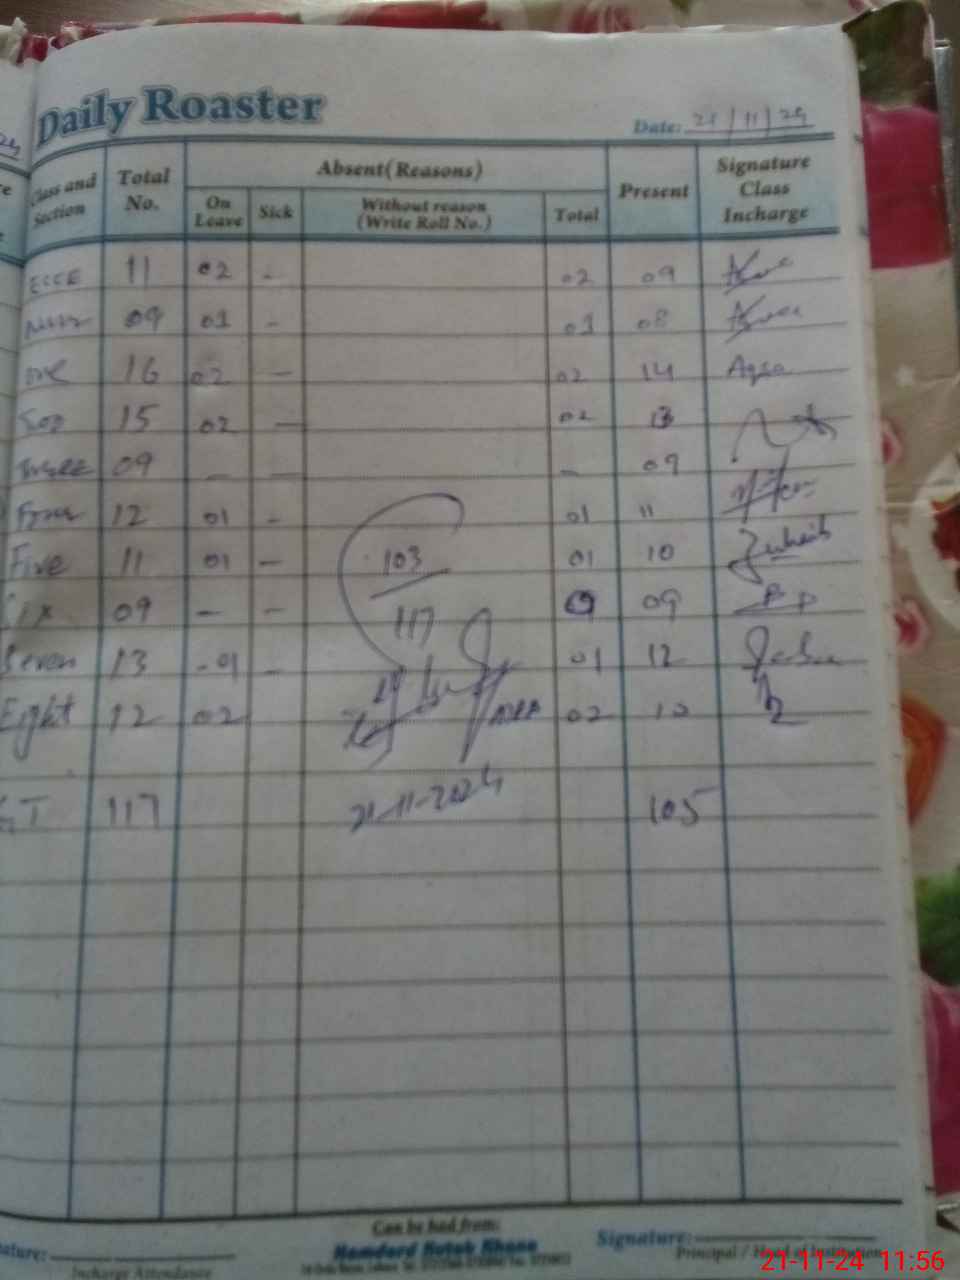 Daily Roaster
Date: 21/11/24
Class and Section Total No. Absent(Reasons) Present Signature Class Incharge
On Leave Sick Without reason (Write Roll No.) Total
ECCE 11 02 - 02 09
09 01 - 01 08
one 16 02 - 02 14 Aqsa
15 02 - 02 13
Three 09 - - - 09
Four 12 01 - 01 11
Five 11 01 - 103 01 10 Zuhaib
Six 09 - - 117 0 09
Seven 13 -01 - 01 12
Eight 12 02 02 10
GT 117 21-11-2024 105
Can be had from:
Hamdard Kutab Khana
Signature:
Incharge Attendance
Signature:
Principal / Head of Institution
21-11-24 11:56